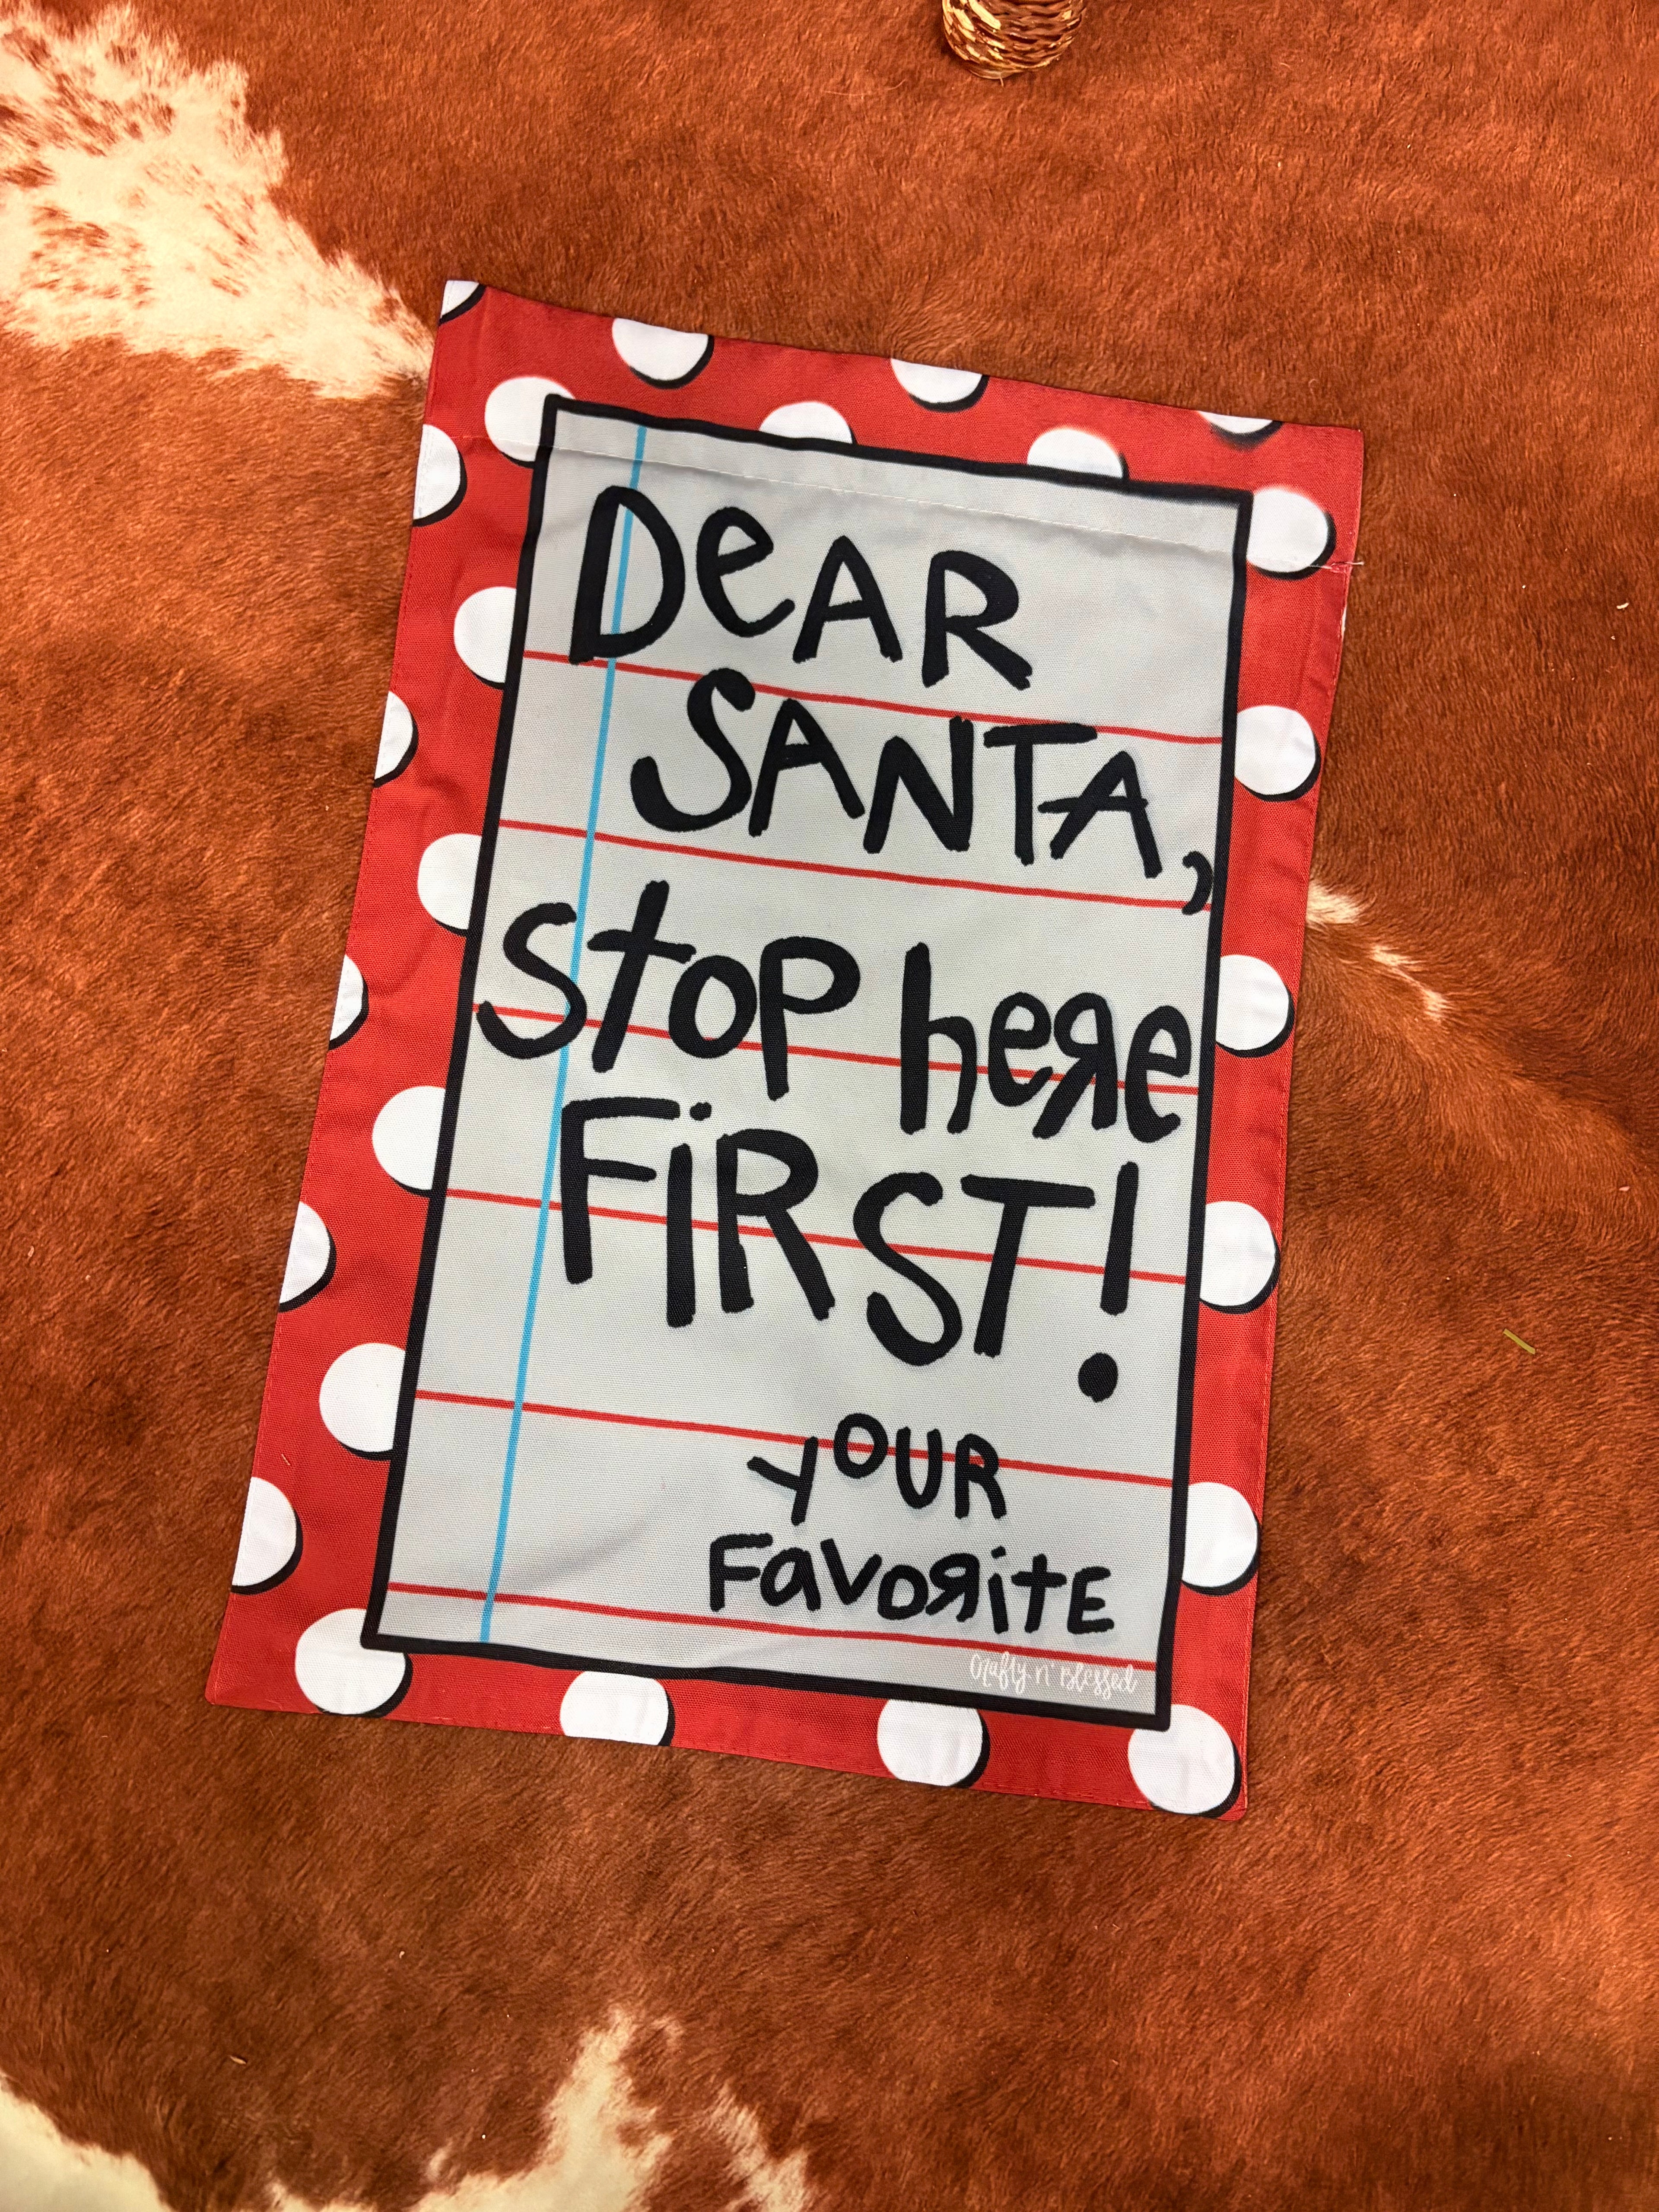 DeAR
SANTA,
Stop here
FiRST!
yOUR
FavoRitE
Crafty n' Blessed